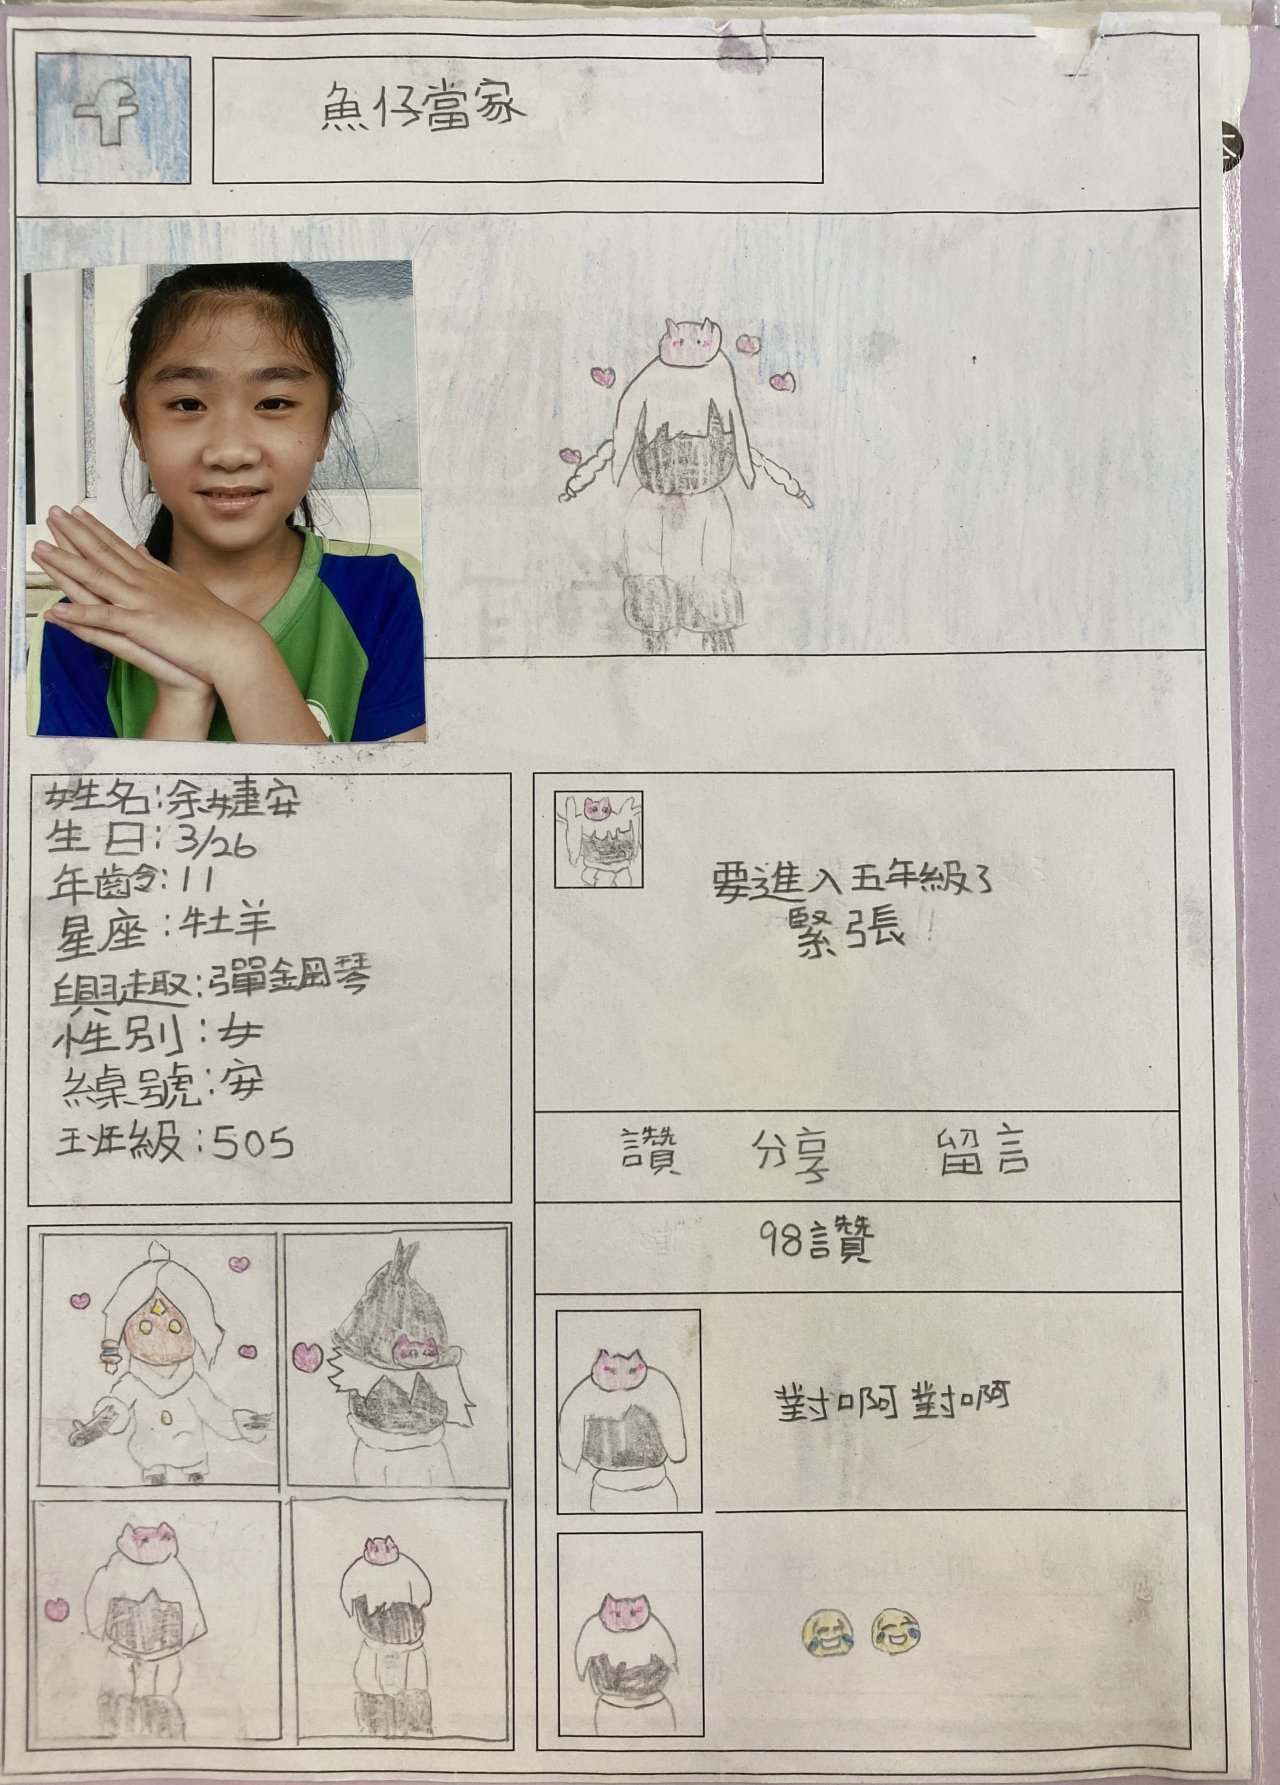 f
魚仔當家
姓名:余婕安
生日:3/26
年齡:11
星座:牡羊
興趣:彈鋼琴
性別:女
綽號:安
班級:505
要進入五年級了
緊張!!
讚 分享 留言
98讚
對啊對啊